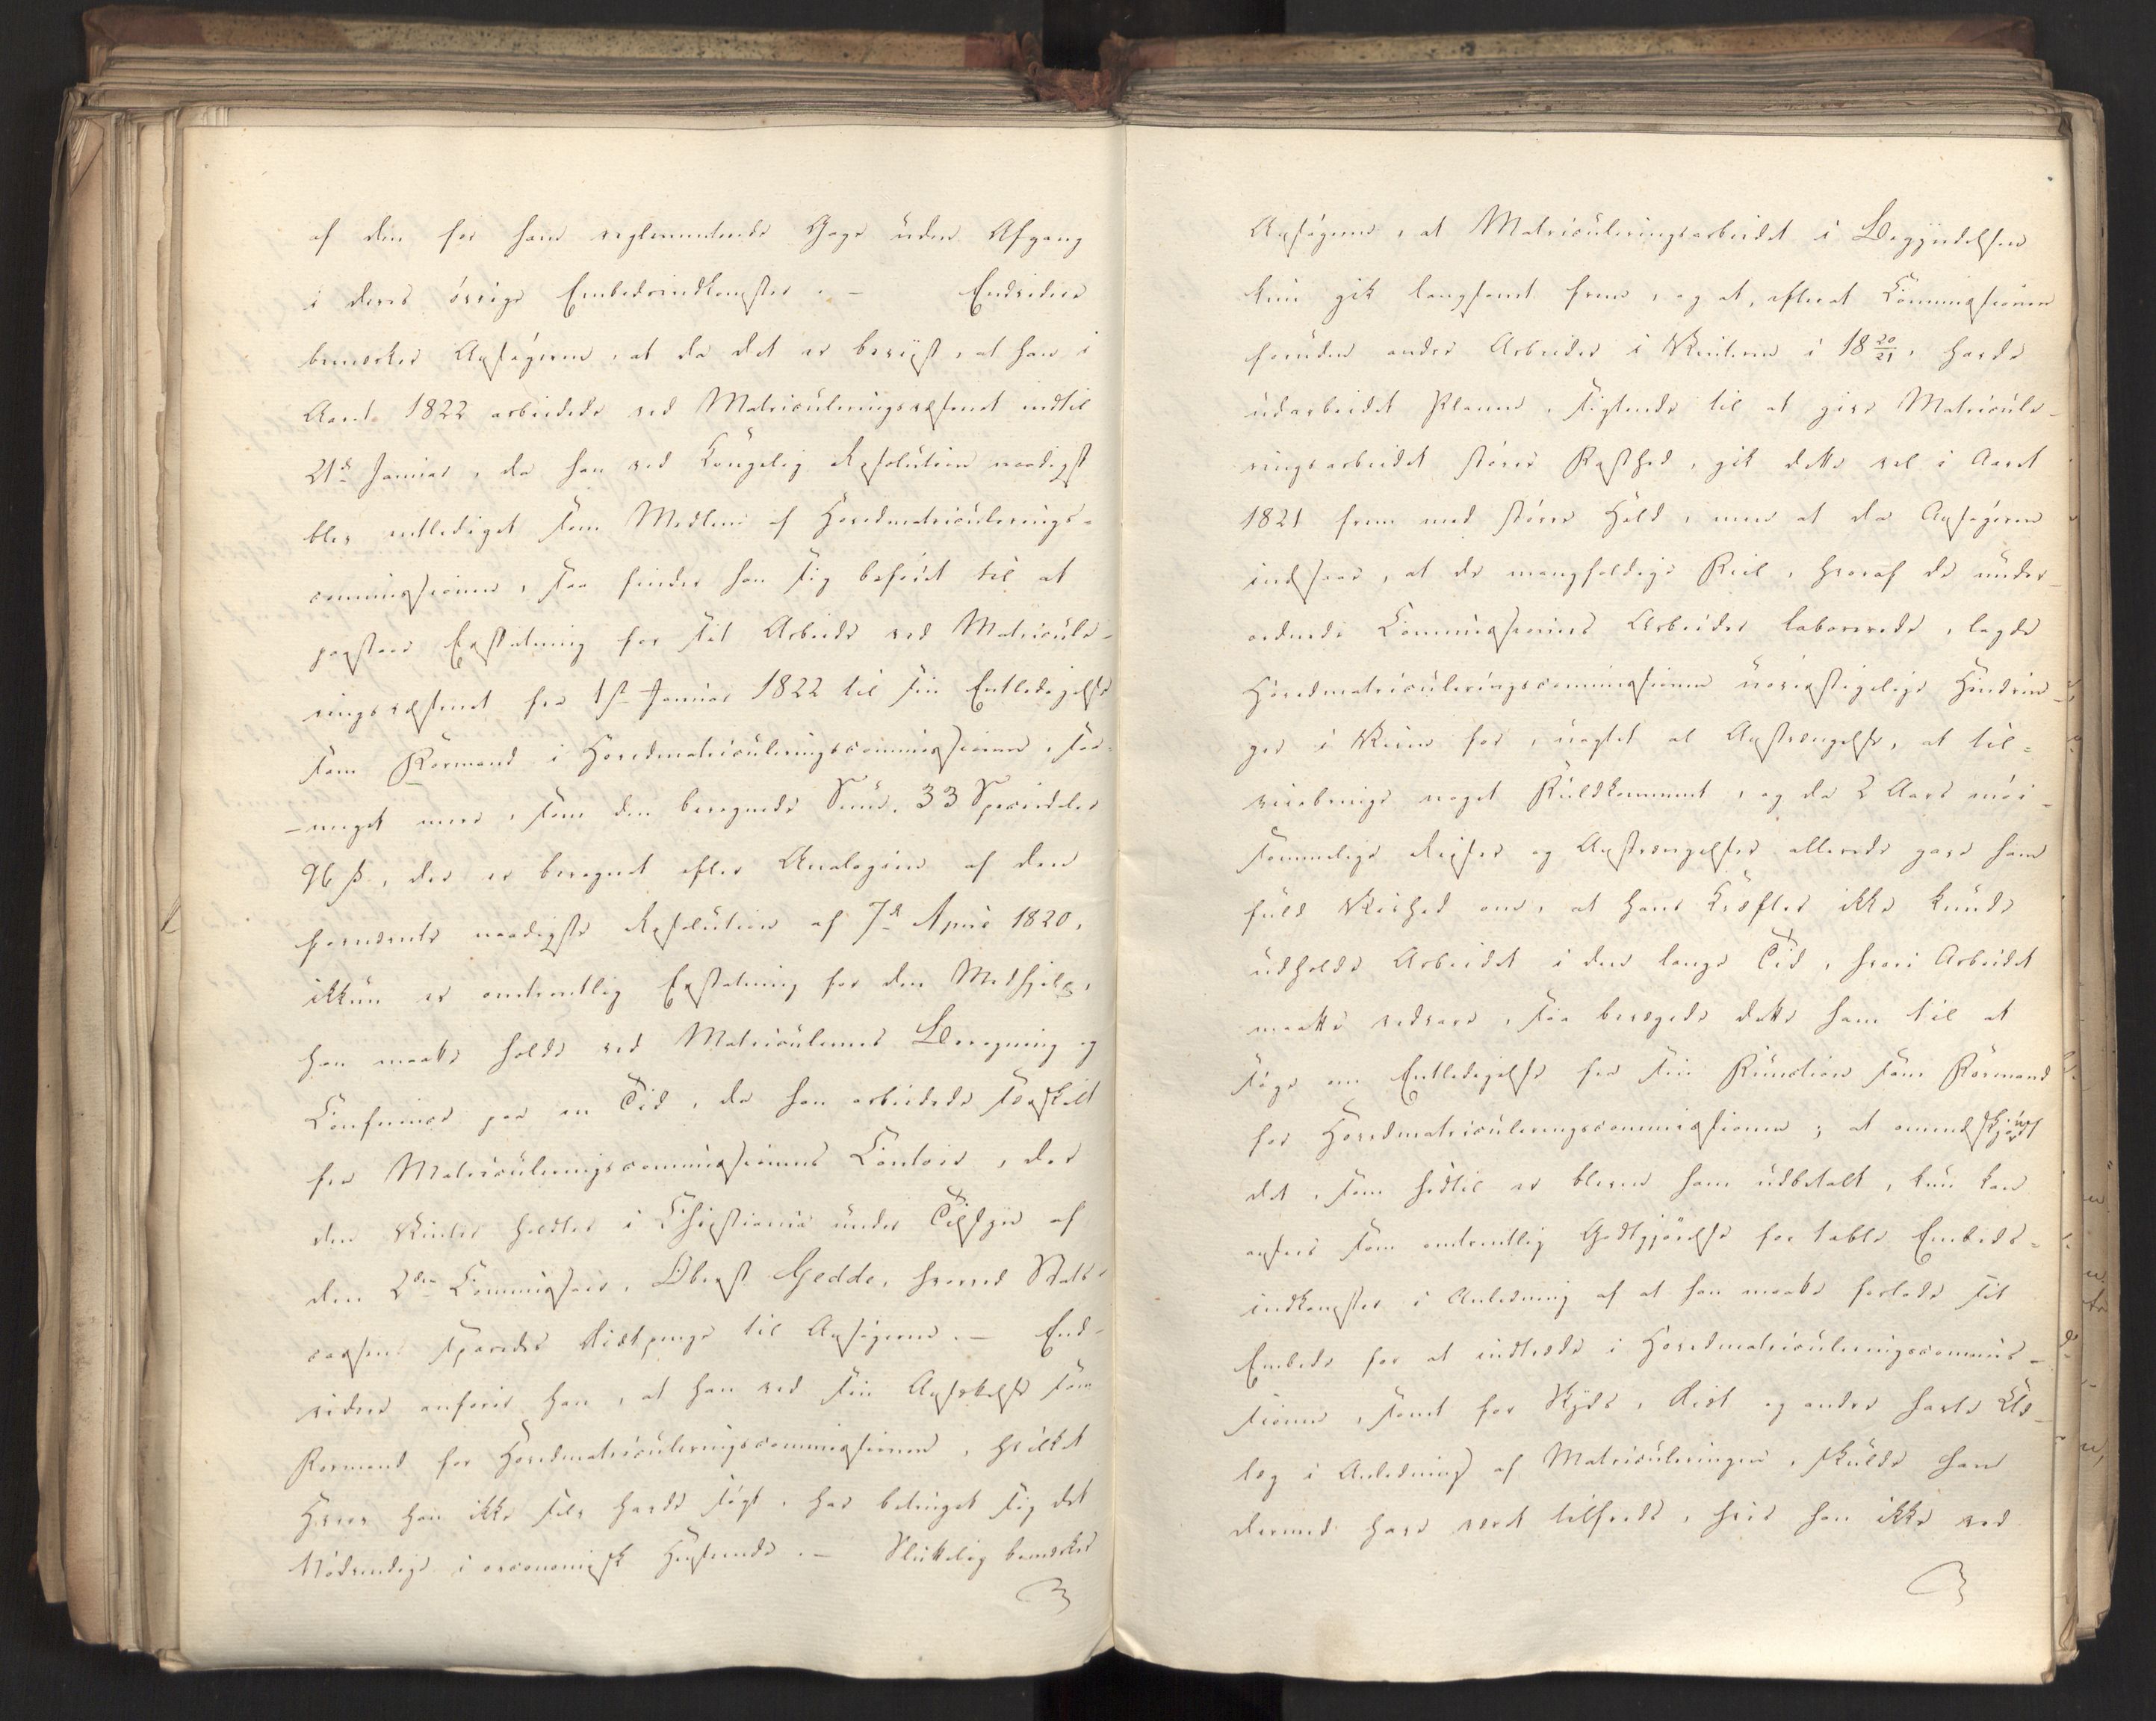 af den for ham reglementerede Gage uden Afgang
i deres övrige Embedsindkomster. — Endvidere
bemærker Ansögeren, at da det er beviist, at han i
Aaret 1822 arbeidede ved Matriculeringsvæsenet indtil
21de Januar, da han ved Kongelig Resolution naadigst
blev entlediget som Medlem af Hovedmatriculerings-
commissionen, saa finder han sig beföiet til at
paastaae Erstatning for sit Arbeide ved Matricule-
ringsvæsenet fra 1ste Januar 1822 til sin Entledigelse
som Formand i Hovedmatriculeringscommissionen, saa-
meget mere, som den beregnede Sum, 33 Speciedaler
96 ß, der er beregnet efter Analogien af den
fornævnte naadigste Resolution af 7de April 1820,
ikkun er omtrentlig Erstatning for den Medhjelp,
han maatte holde ved Matriculernes Beregning og
Conference paa en Tid, da han arbeidede særskilt
fra Matriculeringscommissionens Contoir, der
den Vinter holdtes i Christiania under Tilsyn af
den 2den Commissair, Oberst Gedde, hvorved Stats-
cassen sparede Diætpenge til Ansögeren. — End-
videre anförer han, at han ved sin Ansættelse som
Formand for Hovedmatriculeringscommissionen, hvilket
Hverv han ikke selv havde sögt, har betinget sig det
Nödvendige i oeconomisk Henseende. — Sluttelig bemærker
Ansögeren, at Matriculeringsarbeidet i Begyndelsen
kun gik langsomt frem, og at, efterat Commissionen
foruden andre Arbeider i Vinteren i 18 20/21, havde
udarbeidet Planer, sigtende til at give Matricule-
ringsarbeidet större Fasthed, gik dette vel i Aaret
1821 frem med större Held, men at da Ansögeren
indsaae, at de mangfoldige Feil, hvoraf de under-
ordnede Commissioners Arbeider laborerede, lagde
Hovedmatriculeringscommissionen uoverstigelige Hindrin-
ger i Veien for, uagtet al Anstrengelse, at til-
veiebringe noget Fuldkomment, og da 2 Aars möi-
sommelige Reiser og Anstrengelser allerede gave ham
fuld Vished om, at hans Kræfter ikke kunde
udholde Arbeidet i den lange Tid, hvori Arbeidet
maatte vedvare, saa bevægede dette ham til at
söge om Entledigelse fra sin Function som Formand
for Hovedmatriculeringscommissionen; at omendskjöndt
det, som hidtil er bleven ham udbetalt, kun kan
ansees som omtrentlig Godtgjörelse for tabte Embeds-
indkomster i Anledning af at han maatte forlade sit
Embede for at indtræde i Hovedmatriculeringscommis-
sionen, samt for Skyds, Diæt og andre havte Ud-
læg i Anledning af Matriculeringen, skulde han
dermed have været tilfreds, hvis han ikke ved